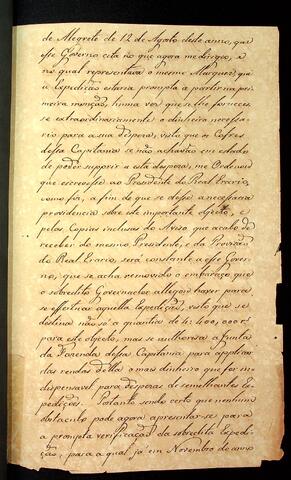 de Alegrete de 12 de Agosto deste anno, que
esse Governo cita no que agora me dirigio, e
no qual representava o mesmo Marquez, que
a Expedição estaria prompta a partir na pri-
meira monção, huma vez que se lhe forneces-
se extraordinariamente o dinheiro necessa-
rio para a sua despeza, visto que os Cofres
dessa Capitania se não achavão em estado
de poder supprir a esta despeza, me Ordenou
que escrevesse ao Presidente do Real Erario,
como fiz, a fim de que se desse a necessaria
providencia sobre este importante objecto, e
pelas Copias inclusas do Aviso que acabo de
receber do mesmo Presidente, e da Provizão
do Real Erario, será constante a esse Gover-
no, que se acha removido o embaraço que
o sobredito Governador allegou haver para
se effeituar aquella Expedição, visto que se
destina não só a quantia de 4:400,000 r.s
para este objecto, mas se authoriza a Junta
da Fazenda dessa Capitania para applicar
das rendas della o mais dinheiro que for in-
dispensavel para despezas de semelhantes Ex-
pedições. Portanto sendo certo que nenhum
obstaculo pode agora apresentar-se para
a prompta verificação da sobredita Expedi-
ção, para a qual já em Novembro do anno